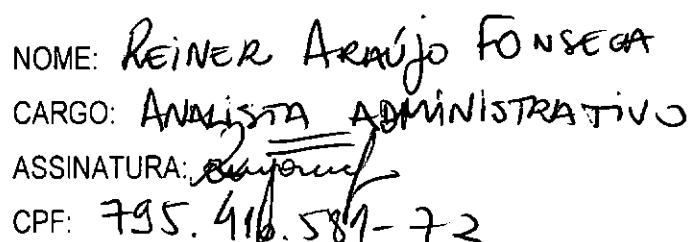 NOME: REINER ARAÚJO FONSECA
CARGO: ANALISTA ADMINISTRATIVO
ASSINATURA:
CPF: 795.416.581-72